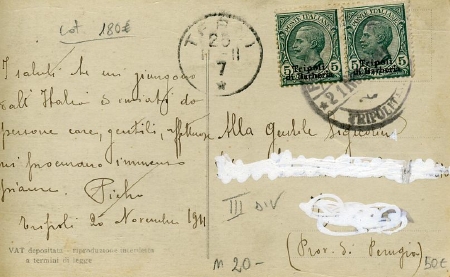 cat. 180€
I saluti che mi giungono
dall'Italia e inviati da
persone care, gentili, affettuose
mi procurano immenso
piacere. Pietro
Tripoli 20 Novembre 1911
VAT depositato - riproduzione interdetta
a termini di legge
TERNI
25
11
7
*
POSTE ITALIANE
5 5
Tripoli
di Barberia
POSTE ITALIANE
5 5
Tripoli
di Barberia
TRIPOLI
Alla Gentile Signorina
III DIV
(Prov. di Perugia)
M 20-
50€